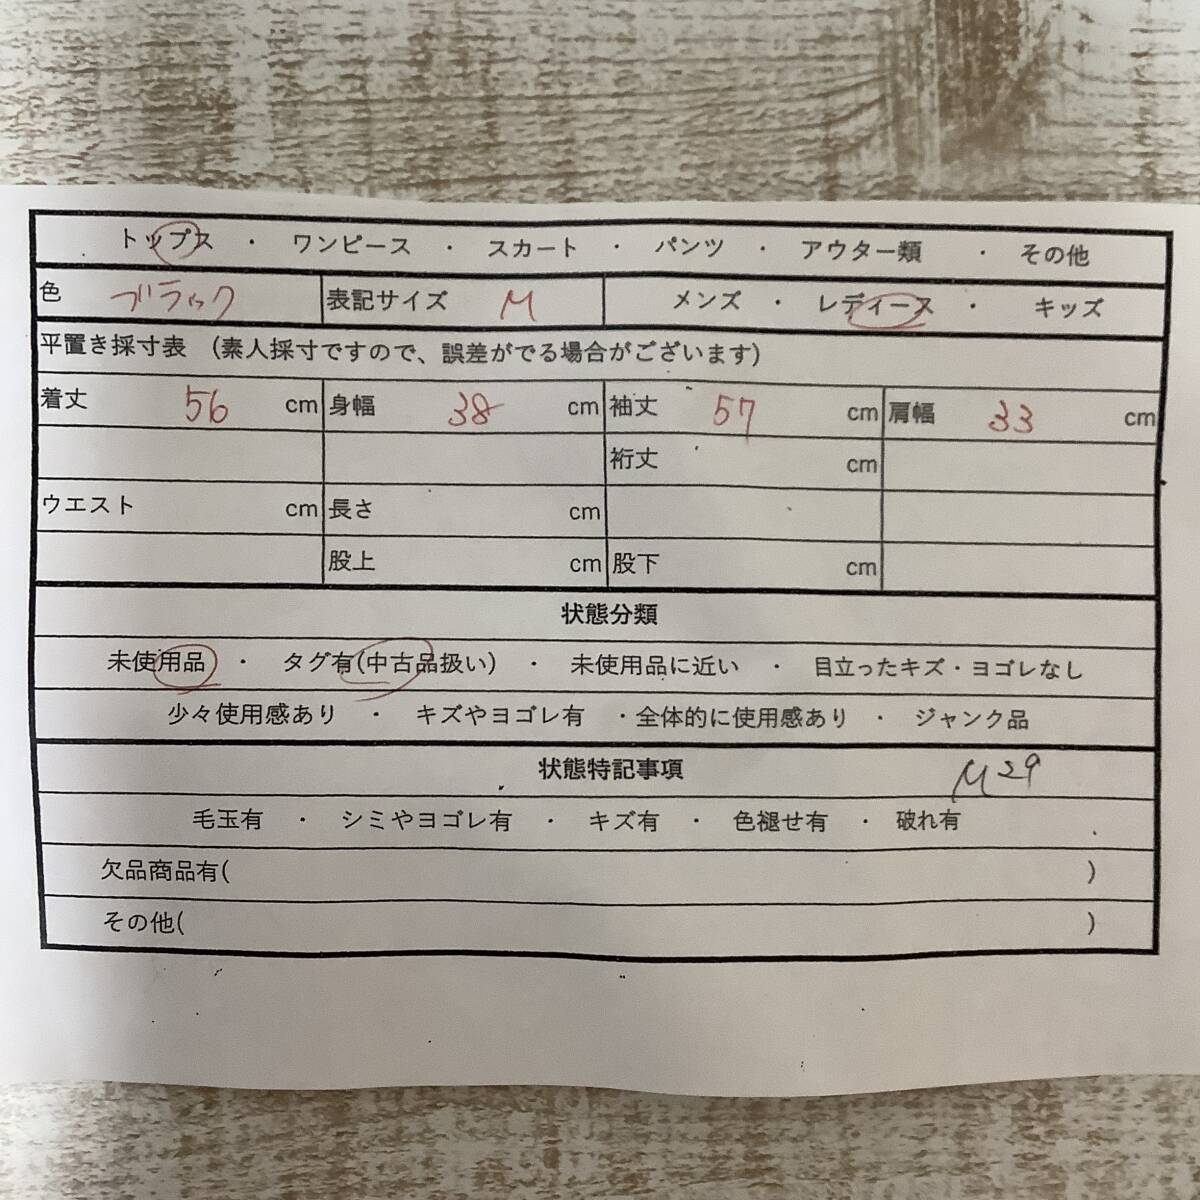 トップス ・ ワンピース ・ スカート ・ パンツ ・ アウター類 ・ その他
色 ブラック 表記サイズ M メンズ ・ レディース ・ キッズ
平置き採寸表 (素人採寸ですので、誤差がでる場合がございます)
着丈 56 cm 身幅 38 cm 袖丈 57 cm 肩幅 33 cm
裄丈 cm
ウエスト cm 長さ cm
股上 cm 股下 cm
状態分類
未使用品 ・ タグ有(中古品扱い) ・ 未使用品に近い ・ 目立ったキズ・ヨゴレなし
少々使用感あり ・ キズやヨゴレ有 ・全体的に使用感あり ・ ジャンク品
状態特記事項 M29
毛玉有 ・ シミやヨゴレ有 ・ キズ有 ・ 色褪せ有 ・ 破れ有
欠品商品有( )
その他( )